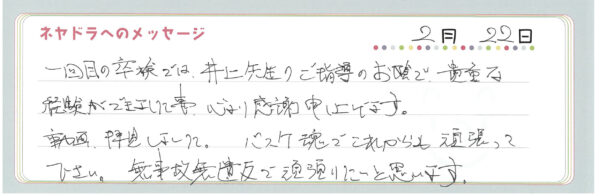 ネヤドラへのメッセージ
2月 22日
一回目の卒検では、井上先生のご指導のお陰で、貴重な
経験ができました事、心より感謝申し上げます。
動画、拝見しました。バスケ魂でこれからも頑張って
下さい。無事故無違反で頑張りたいと思います。